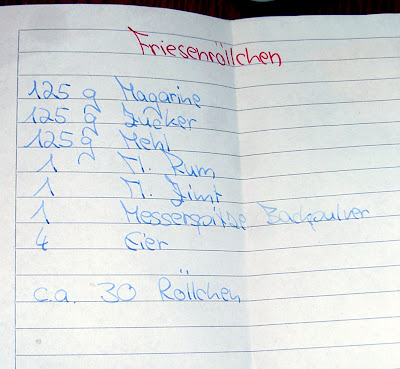 Friesenröllchen
125 g Magarine
125 g Zucker
125 g Mehl
1 Fl. Rum
1 Fl. Zimt
1 Messerspitze Backpulver
4 Eier
ca. 30 Röllchen